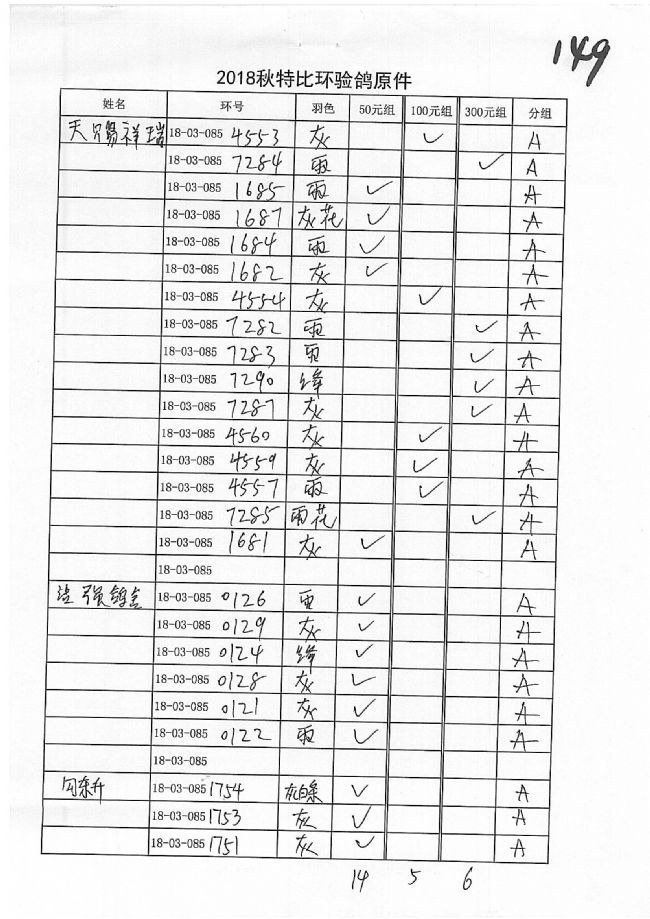 149
2018秋特比环验鸽原件
姓名 环号 羽色 50元组 100元组 300元组 分组
天 易祥瑞 18-03-085 4553 灰 ✓ A
18-03-085 7284 雨 ✓ A
18-03-085 1685 雨 ✓ A
18-03-085 1687 灰花 ✓ A
18-03-085 1684 雨 ✓ A
18-03-085 1682 灰 ✓ A
18-03-085 4554 灰 ✓ A
18-03-085 7282 雨 ✓ A
18-03-085 7283 雨 ✓ A
18-03-085 7290 绛 ✓ A
18-03-085 7287 灰 ✓ A
18-03-085 4560 灰 ✓ A
18-03-085 4559 灰 ✓ A
18-03-085 4557 雨 ✓ A
18-03-085 7285 雨花 ✓ A
18-03-085 1681 灰 ✓ A
18-03-085
强鸽舍 18-03-085 0126 雨 ✓ A
18-03-085 0129 灰 ✓ A
18-03-085 0124 绛 ✓ A
18-03-085 0128 灰 ✓ A
18-03-085 0121 灰 ✓ A
18-03-085 0122 雨 ✓ A
18-03-085
18-03-085 1754 灰白条 ✓ A
18-03-085 1753 灰 ✓ A
18-03-085 1751 灰 ✓ A
14 5 6